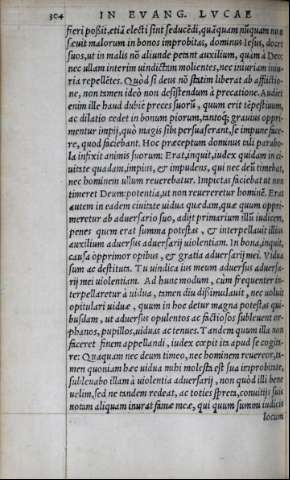 304 IN EVANG. LVCAE
fieri possit, etiā electi sint seducēdi, quāquam nūquam non
sęuit malorum in bonos improbitas, dominus Iesus, docet
suos, ut in malis nō aliunde petant auxilium, quam a Deo:
nec ullam interim uindictam molientes, nec iniuriam iniu-
ria repellētes. Quòd si deus nō statim liberat ab afflictio-
ne, non tamen ideò non desistendum à precatione. Audiet
enim ille haud dubiè preces suorū, quum erit tēpestiuum,
ac dilatio cedet in bonum piorum, tantoq; grauius oppri-
mentur impij, quò magis sibi persuaserant, se impune face-
re, quod faciebant. Hoc præceptum dominus tali parabo-
la infixit animis suorum: Erat, inquit, iudex quidam in ci-
uitate quadam, impius, & impudens, qui nec deū timebat,
nec hominem ullum reuerebatur. Impietas faciebat ne non
timeret Deum: potentia, ut non reuereretur hominē. Erat
autem in eadem ciuitate uidua quædam, quæ quum oppri-
meretur ab aduersario suo, adijt primarium illū iudicem,
penes quem erat summa potestas, & interpellauit illius
auxilium aduersus aduersarij uiolentiam. In bona, inquit,
causa opprimor opibus, & gratia aduersarij mei. Vidua
sum ac destituta. Tu uindica ius meum aduersus aduersa-
rij mei uiolentiam. Ad hunc modum, cùm frequenter in-
terpellaretur à uidua, tamen diu dissimulauit, nec uoluit
opitulari uiduæ, quum in hoc detur magna potestas qui-
busdam, ut aduersus opulentos ac factiosos subleuent or-
phanos, pupillos, uiduas ac tenues. Tandem quum illa non
faceret finem appellandi, iudex cœpit ita apud se cogita-
re: Quāquam nec deum timeo, nec hominem reuereor, ta-
men quoniam hæc uidua mihi molesta est sua improbitate,
subleuabo illam à uiolentia aduersarij, non quòd illi bene
uelim, sed ne tandem redeat, ac toties spreta, conuitijs suis
notam aliquam inurat famæ meæ, qui quum summū iudicis
locum